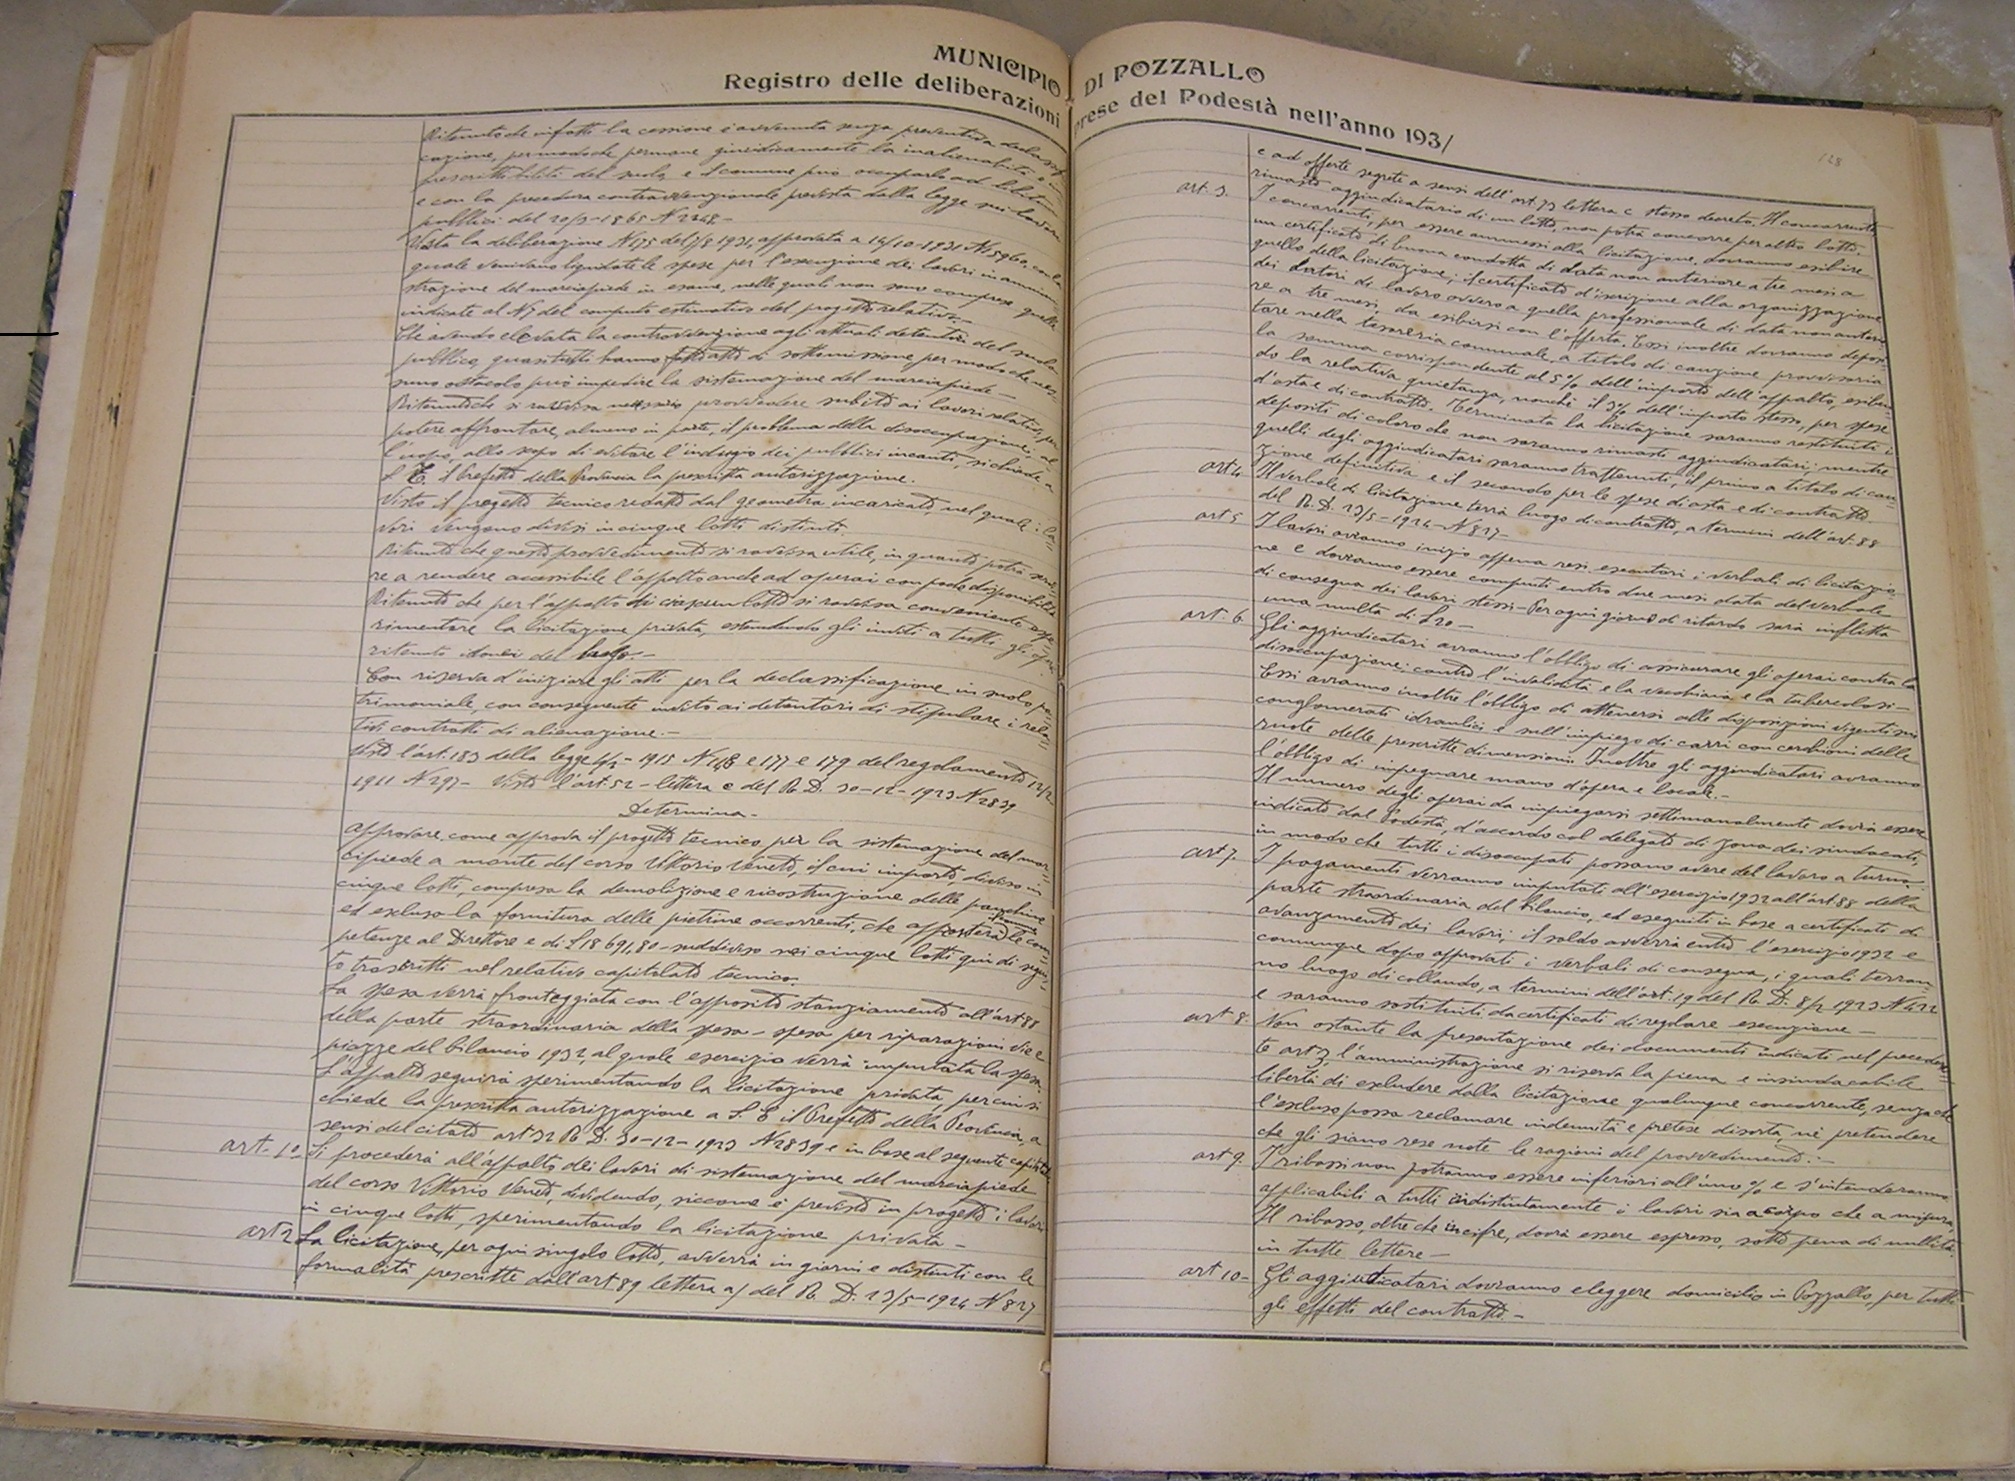 MUNICIPIO DI POZZALLO
Registro delle deliberazioni prese del Podestà nell'anno 193/
Ritenuto che infatti la cessione è avvenuta senza preventiva declassifi
cazione, permodoché permane giuridicamente la inalienabilità e im
prescrittibilità del suolo e il comune può occuparlo ad libitum
e con la procedura contravvenzionale prevista dalla legge sui lavori
pubblici del 20/3-1865 N 2248-
Vista la deliberazione N 175 del 7/8 1931, approvata a 14/10-1931 N 15960, con la
quale venivano liquidate le spese per l'esecuzione dei lavori in ammini
strazione del marciapiede in esame, nelle quali non sono comprese quelle
indicate al N 7 del computo estimativo del progetto relativo.-
Che avendo elevata la contravvenzione agli attuali detentori del suolo
pubblico, quasi tutti hanno fatto atto di sottomissione per modo che nes-
suno ostacolo può impedire la sistemazione del marciapiede-
Ritenuto che si ravvisa necessario provvedere subito ai lavori relativi, per
potere affrontare, almeno in parte, il problema della disoccupazione, al
l'uopo, allo scopo di evitare l'indugio dei pubblici incanti, si chiede a
S. E. il Prefetto della Provincia la prescritta autorizzazione.
Visto il progetto tecnico redatto dal geometra incaricato, nel quale i la-
vori vengono divisi in cinque lotti distinti.
Ritenuto che questo provvedimento si ravvisa utile, in quanto potrà servi-
re a rendere accessibile l'appalto anche ad operai con poche disponibilità
Ritenuto che per l'appalto di ciascun lotto si ravvisa conveniente espe
rimentare la licitazione privata, estendendo gli inviti a tutti gli
ritenuti idonei del luogo.-
Con riserva d'iniziare gli atti per la declassificazione in suolo pa-
trimoniale, con conseguente invito ai detentori di stipulare i rela-
tivi contratti di alienazione.-
Visto l'art. 183 della legge 4/2-1915 N 148 e 177 e 179 del regolamento 12/2
1911 N 297- Visto l'art. 52- lettera e del R. D. 30-12-1923 N 2839
Determina-
Approvare, come approva il progetto tecnico per la sistemazione del mar-
ciapiede a monte del corso Vittorio Veneto, il cui importo, diviso in
cinque lotti, compresa la demolizione e ricostruzione delle panchine
ed escluso la fornitura delle pietrine occorrenti, che le com-
petenze al Direttore e di £ 18691,80- suddiviso nei cinque lotti quì di segui-
to trascritti nel relativo capitolato tecnico.
La spesa verrà fronteggiata con l'apposito stanziamento all'art 88
della parte straordinaria della spesa- spesa per riparazioni vie e
piazze del bilancio 1932, al quale esercizio verrà imputata la spesa.
L'appalto seguirà sperimentando la licitazione privata, per cui si
chiede la prescritta autorizzazione a S. E il Prefetto della Provincia, a
sensi del citato art 52 R. D. 30-12-1923 N 2839 e in base al seguente capitolato
art. 1° Si procederà all'appalto dei lavori di sistemazione del marciapiede
del corso Vittorio Veneto, dividendo, siccome è previsto in progetto i lavori
in cinque lotti, sperimentando la licitazione privata-
art 2 La licitazione, per ogni singolo lotto, avverrà in giorni e distinti con le
formalità prescritte dall'art 89 lettera a/ del R. D. 23/5-1924 N 827
128
e ad offerte segrete a sensi dell'art. 73 lettera c stesso decreto. Il concorrente
rimasto aggiudicatario di un lotto, non potrà concorre per altro lotto.
art. 3. I concorrenti, per essere ammessi alla licitazione, dovranno esibire
un certificato di buona condotta di data non anteriore a tre mesi a
quello della licitazione; il certificato d'iscrizione alla organizzazione
dei datori di lavoro ovvero a quella professionale di data non anterio
re a tre mesi, da esibirsi con l'offerta. Essi inoltre dovranno deposi
tare nella tesoreria comunale, a titolo di cauzione provvisoria
la somma corrispondente al 5% dell'importo dell'appalto, esiben
do la relativa quietanza, nonché il 3% dell'importo stesso, per spese
d'asta e di contratto. Terminata la licitazione saranno restituiti i
depositi di coloro che non saranno rimasti aggiudicatari; mentre
quelli degli aggiudicatari saranno trattenuti, il primo a titolo di cau-
zione definitiva e il secondo per le spese di asta e di contratto
art 4. Il verbale di licitazione terrà luogo di contratto, a termini dell'art. 88
del R. D. 23/5-1924- N 827-
art 5 I lavori avranno inizio appena resi esecutori i verbali di licitazio
ne e dovranno essere compiuti entro due mesi data del verbale
di consegna dei lavori stessi- Per ogni giorno di ritardo sarà inflitta
una multa di £ 20-
art. 6 Gli aggiudicatari avranno l'obbligo di assicurare gli operai contro la
disoccupazione; contro l'invalidità e la vecchiaia e la tubercolosi-
Essi avranno inoltre l'obbligo di attenersi alle disposizioni vigenti sui
conglomerati idraulici e sull'impiego di carri con cerchioni delle
ruote delle prescritte dimensioni. Inoltre gli aggiudicatari avranno
l'obbligo di impegnare mano d'opera e locale.-
Il numero degli operai da impiegarsi settimanalmente dovrà essere
indicato dal Podestà, d'accordo col delegato di zona dei sindacati,
in modo che tutti i disoccupati possano avere del lavoro a turno.
art 7. I pagamenti verranno imputati all'esercizio 1932 all'art 88 della
parte straordinaria del bilancio, ed eseguiti in base a certificati di
avanzamento dei lavori; il saldo avverrà entro l'esercizio 1932 e
comunque dopo approvati i verbali di consegna, i quali terran-
no luogo di collaudo, a termini dell'art. 19 del R. D. 8/2 1923 N 422
e saranno sostituiti da certificati di regolare esecuzione-
art 8. Non ostante la presentazione dei documenti indicati nel preceden-
te art 3, l'amministrazione si riserva la piena e insindacabile
libertà di escludere dalla licitazione qualunque concorrente, senza che
l'escluso possa reclamare indennità e pretese di sorta, né pretendere
che gli siano rese note le ragioni del provvedimento.-
art 9. I ribassi non potranno essere inferiori all'uno % e s'intenderanno
applicabili a tutti indistintamente i lavori sia a corpo che a misura
Il ribasso, oltre che in cifre, dovrà essere espresso, sotto pena di nullità
in tutte lettere-
art 10- Gli aggiudicatari dovranno eleggere domicilio in Pozzallo, per tutti
gli effetti del contratto.-